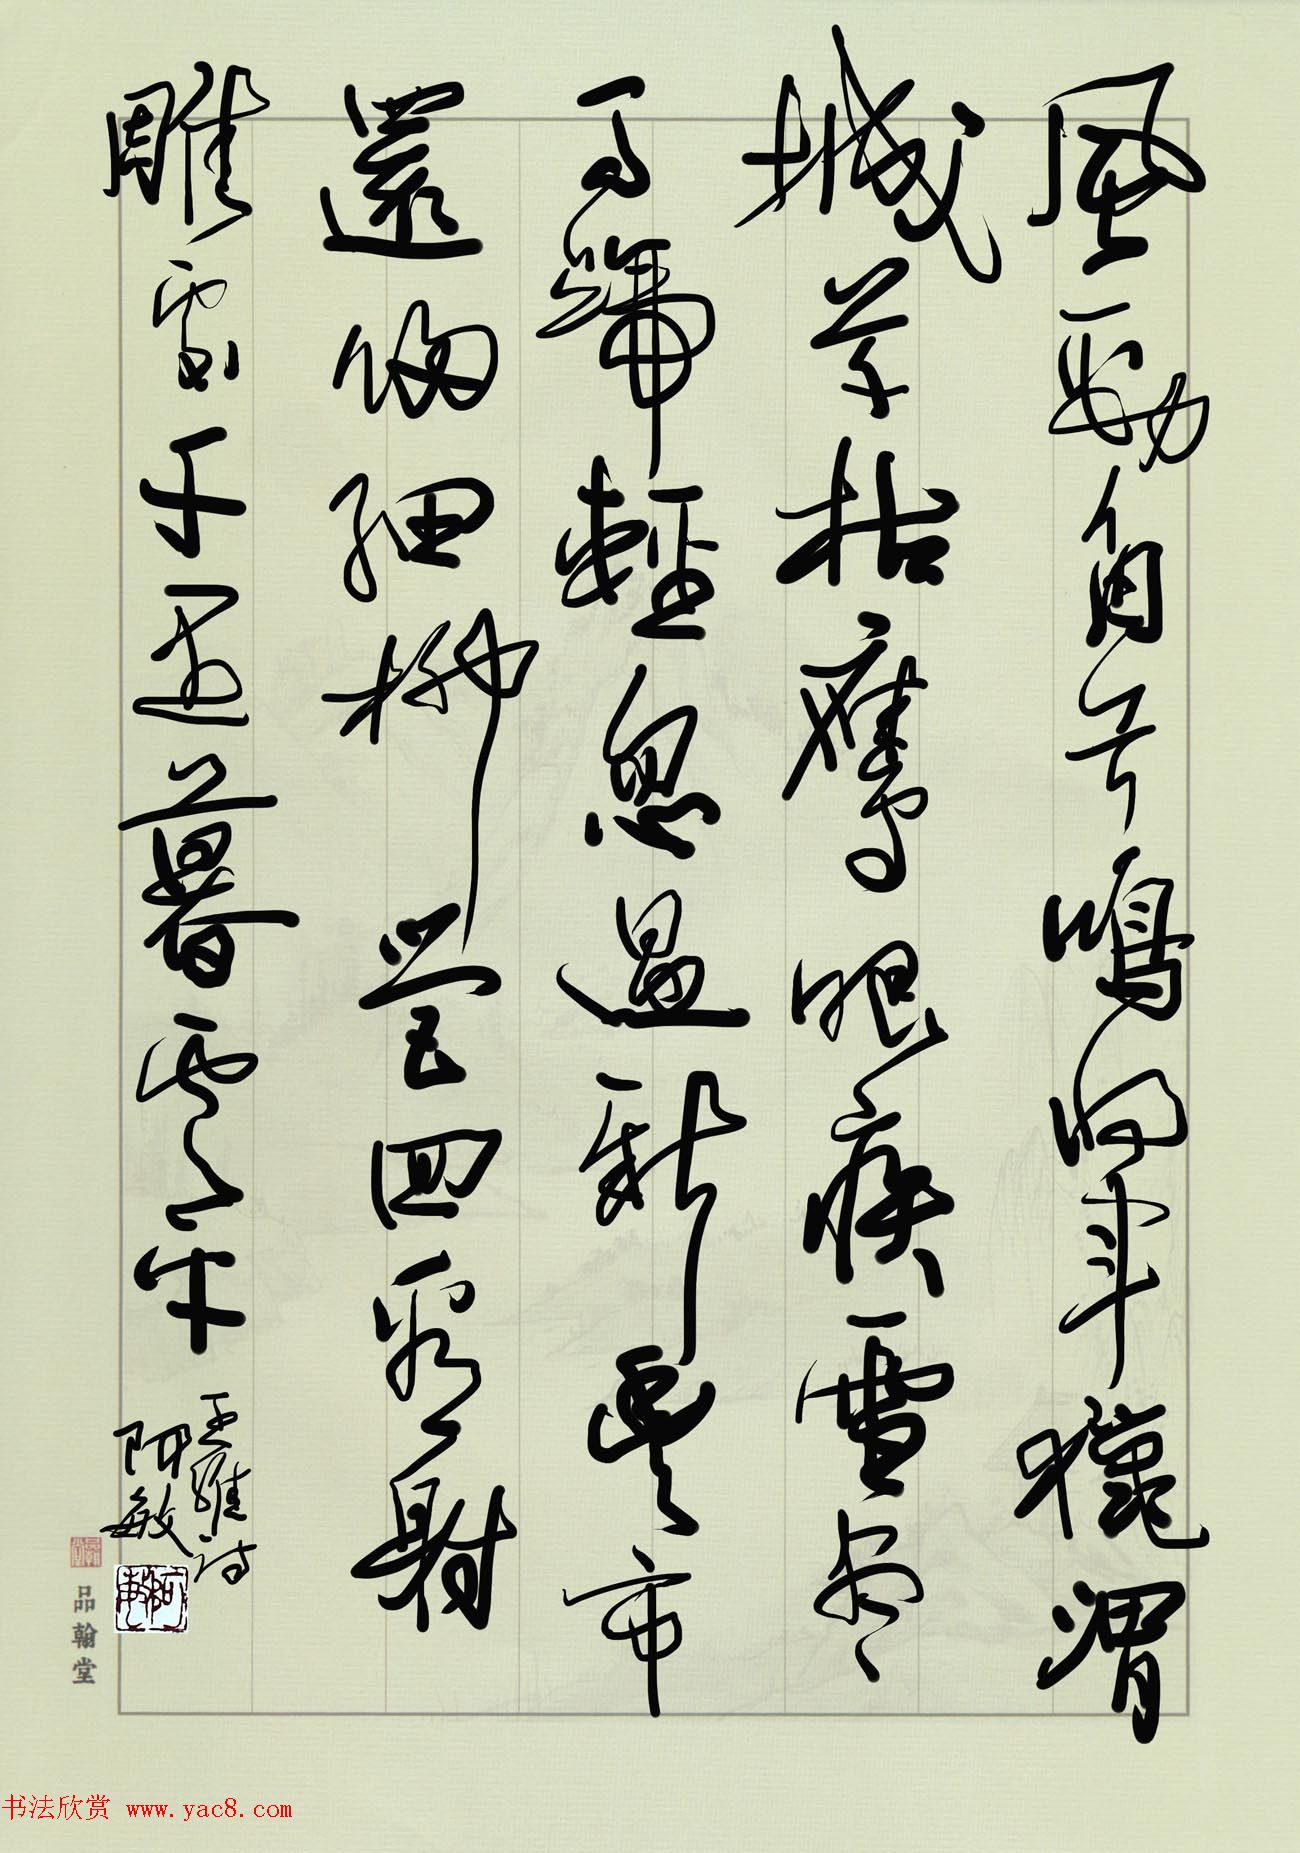 風勁角弓鳴將軍獵渭
城草枯鷹眼疾雪盡
馬蹄輕忽過新豐市
還歸細柳營回看射
雕處千里暮雲平
王維詩
阿敏
品翰堂
书法欣赏 www.yac8.com